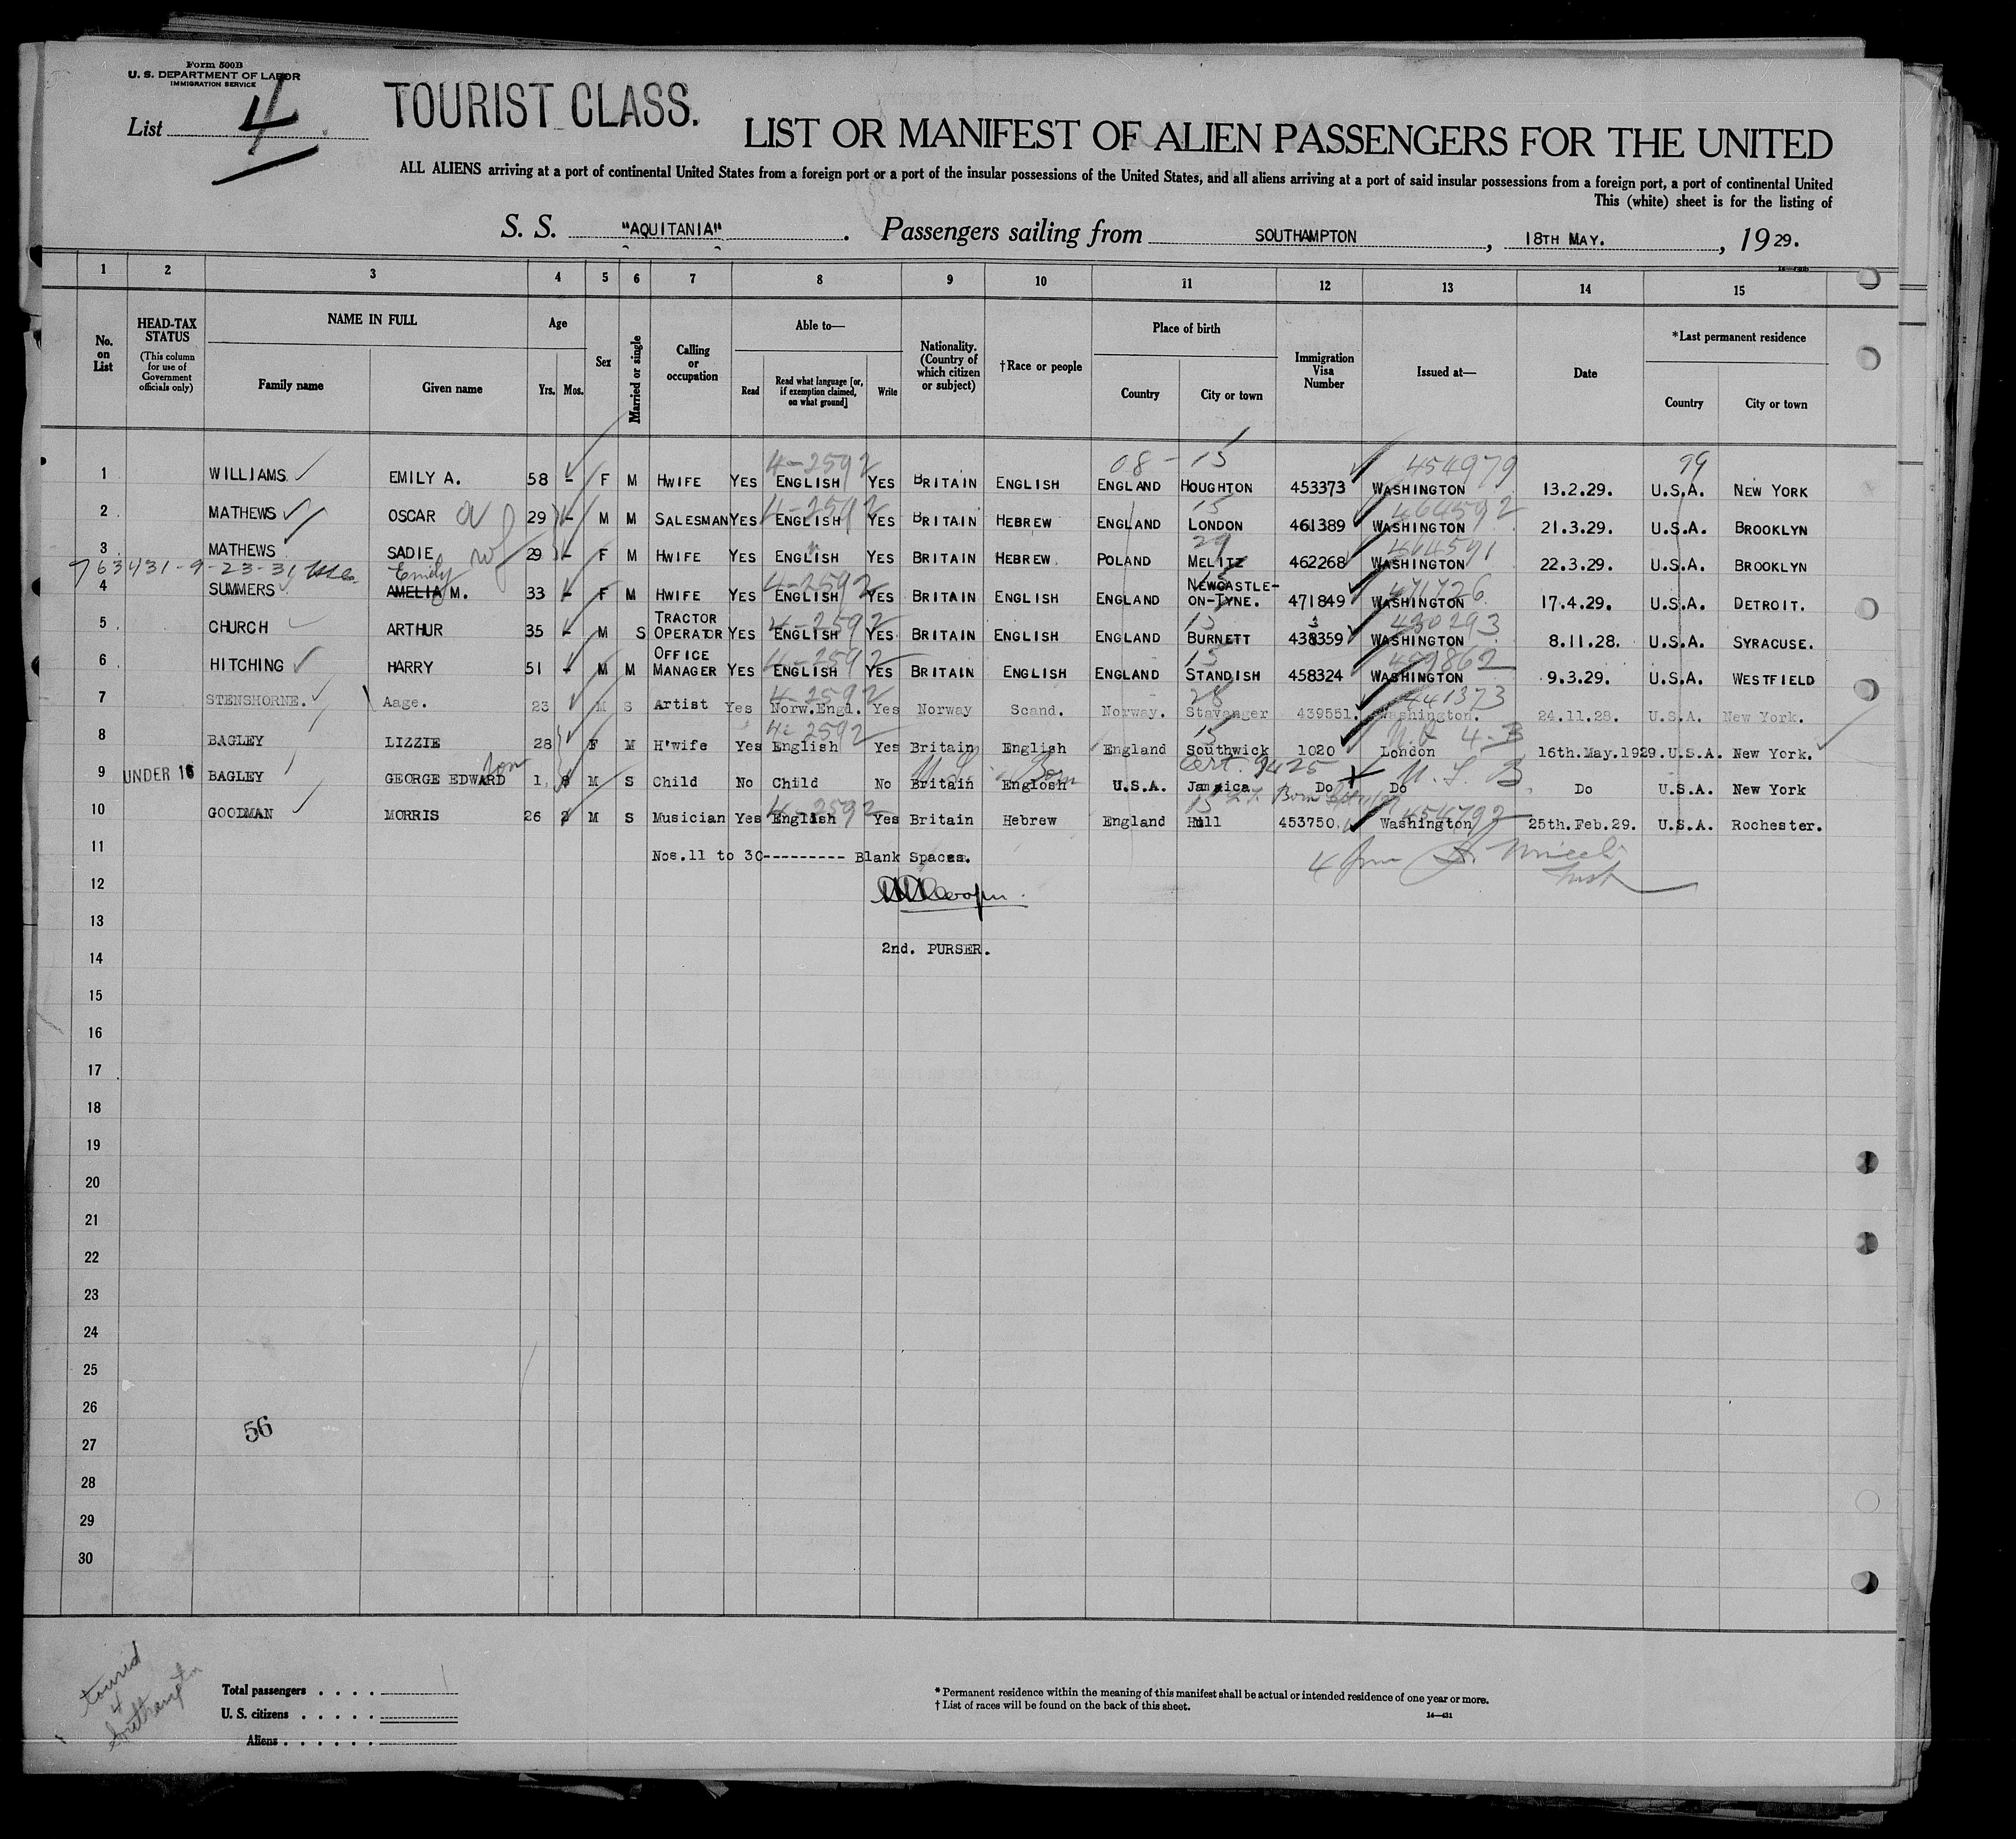 Form 500B
U. S. DEPARTMENT OF LABOR
IMMIGRATION SERVICE
List 4
TOURIST CLASS.
LIST OR MANIFEST OF ALIEN PASSENGERS FOR THE UNITED
ALL ALIENS arriving at a port of continental United States from a foreign port or a port of the insular possessions of the United States, and all aliens arriving at a port of said insular possessions from a foreign port, a port of continental United
This (white) sheet is for the listing of
S. S. "AQUITANIA". Passengers sailing from SOUTHAMPTON, 18TH MAY., 1929.
1 2 3 4 5 6 7 8 9 10 11 12 13 14 15
No. on List
HEAD-TAX STATUS (This column for use of Government officials only)
NAME IN FULL
Family name Given name
Age
Yrs. Mos.
Sex
Married or single
Calling or occupation
Able to—
Read Read what language [or, if exemption claimed, on what ground] Write
Nationality. (Country of which citizen or subject)
†Race or people
Place of birth
Country City or town
Immigration Visa Number
Issued at—
Date
*Last permanent residence
Country City or town
4-2592 08-15 454979 99
1 WILLIAMS EMILY A. 58 - F M HWIFE YES ENGLISH YES BRITAIN ENGLISH ENGLAND HOUGHTON 453373 WASHINGTON 13.2.29. U.S.A. NEW YORK
4-2592 15 464592
2 MATHEWS OSCAR 29 - M M SALESMAN YES ENGLISH YES BRITAIN HEBREW ENGLAND LONDON 461389 WASHINGTON 21.3.29. U.S.A. BROOKLYN
29 464591
3 MATHEWS SADIE wf 29 - F M HWIFE YES ENGLISH YES BRITAIN HEBREW. POLAND MELITZ 462268 WASHINGTON 22.3.29. U.S.A. BROOKLYN
763431-9-23-31 Emily 4-2592 15 471726
4 SUMMERS AMELIA M. 33 - F M HWIFE YES ENGLISH YES BRITAIN ENGLISH ENGLAND NEWCASTLE-ON-TYNE. 471849 WASHINGTON 17.4.29. U.S.A. DETROIT.
4-2592 15 430293
5 CHURCH ARTHUR 35 - M S TRACTOR OPERATOR YES ENGLISH YES BRITAIN ENGLISH ENGLAND BURNETT 438359 WASHINGTON 8.11.28. U.S.A. SYRACUSE.
4-2592 15 459862
6 HITCHING HARRY 51 - M M OFFICE MANAGER YES ENGLISH YES BRITAIN ENGLISH ENGLAND STANDISH 458324 WASHINGTON 9.3.29. U.S.A. WESTFIELD
4-2592 28 441373
7 STENSHORNE. Aage. 23 M S Artist Yes Norw.Engl. Yes Norway Scand. Norway. Stavanger 439551. Washington. 24.11.28. U.S.A. New York.
4-2592 15
8 BAGLEY LIZZIE 28 F M H'wife Yes English Yes Britain English England Southwick 1020 London 16th.May.1929. U.S.A. New York.
son Born Cert. 9425 U. S. B
9 UNDER 16 BAGLEY GEORGE EDWARD 1. 8 M S Child No Child No Britain Englosh U.S.A. Jamaica Do Do Do U.S.A. New York
4-2592 15 454792
10 GOODMAN MORRIS 26 2 M S Musician Yes English Yes Britain Hebrew England Hull 453750. Washington 25th.Feb.29. U.S.A. Rochester.
11 Nos.11 to 30--------- Blank Spaces.
12
13
14 2nd. PURSER.
15
16
17
18
19
20
21
22
23
24
25
26
56
27
28
29
30
tourid
4
Southampton
Total passengers . . . .
U. S. citizens . . . . .
Aliens . . . . . .
* Permanent residence within the meaning of this manifest shall be actual or intended residence of one year or more.
† List of races will be found on the back of this sheet.
14—431